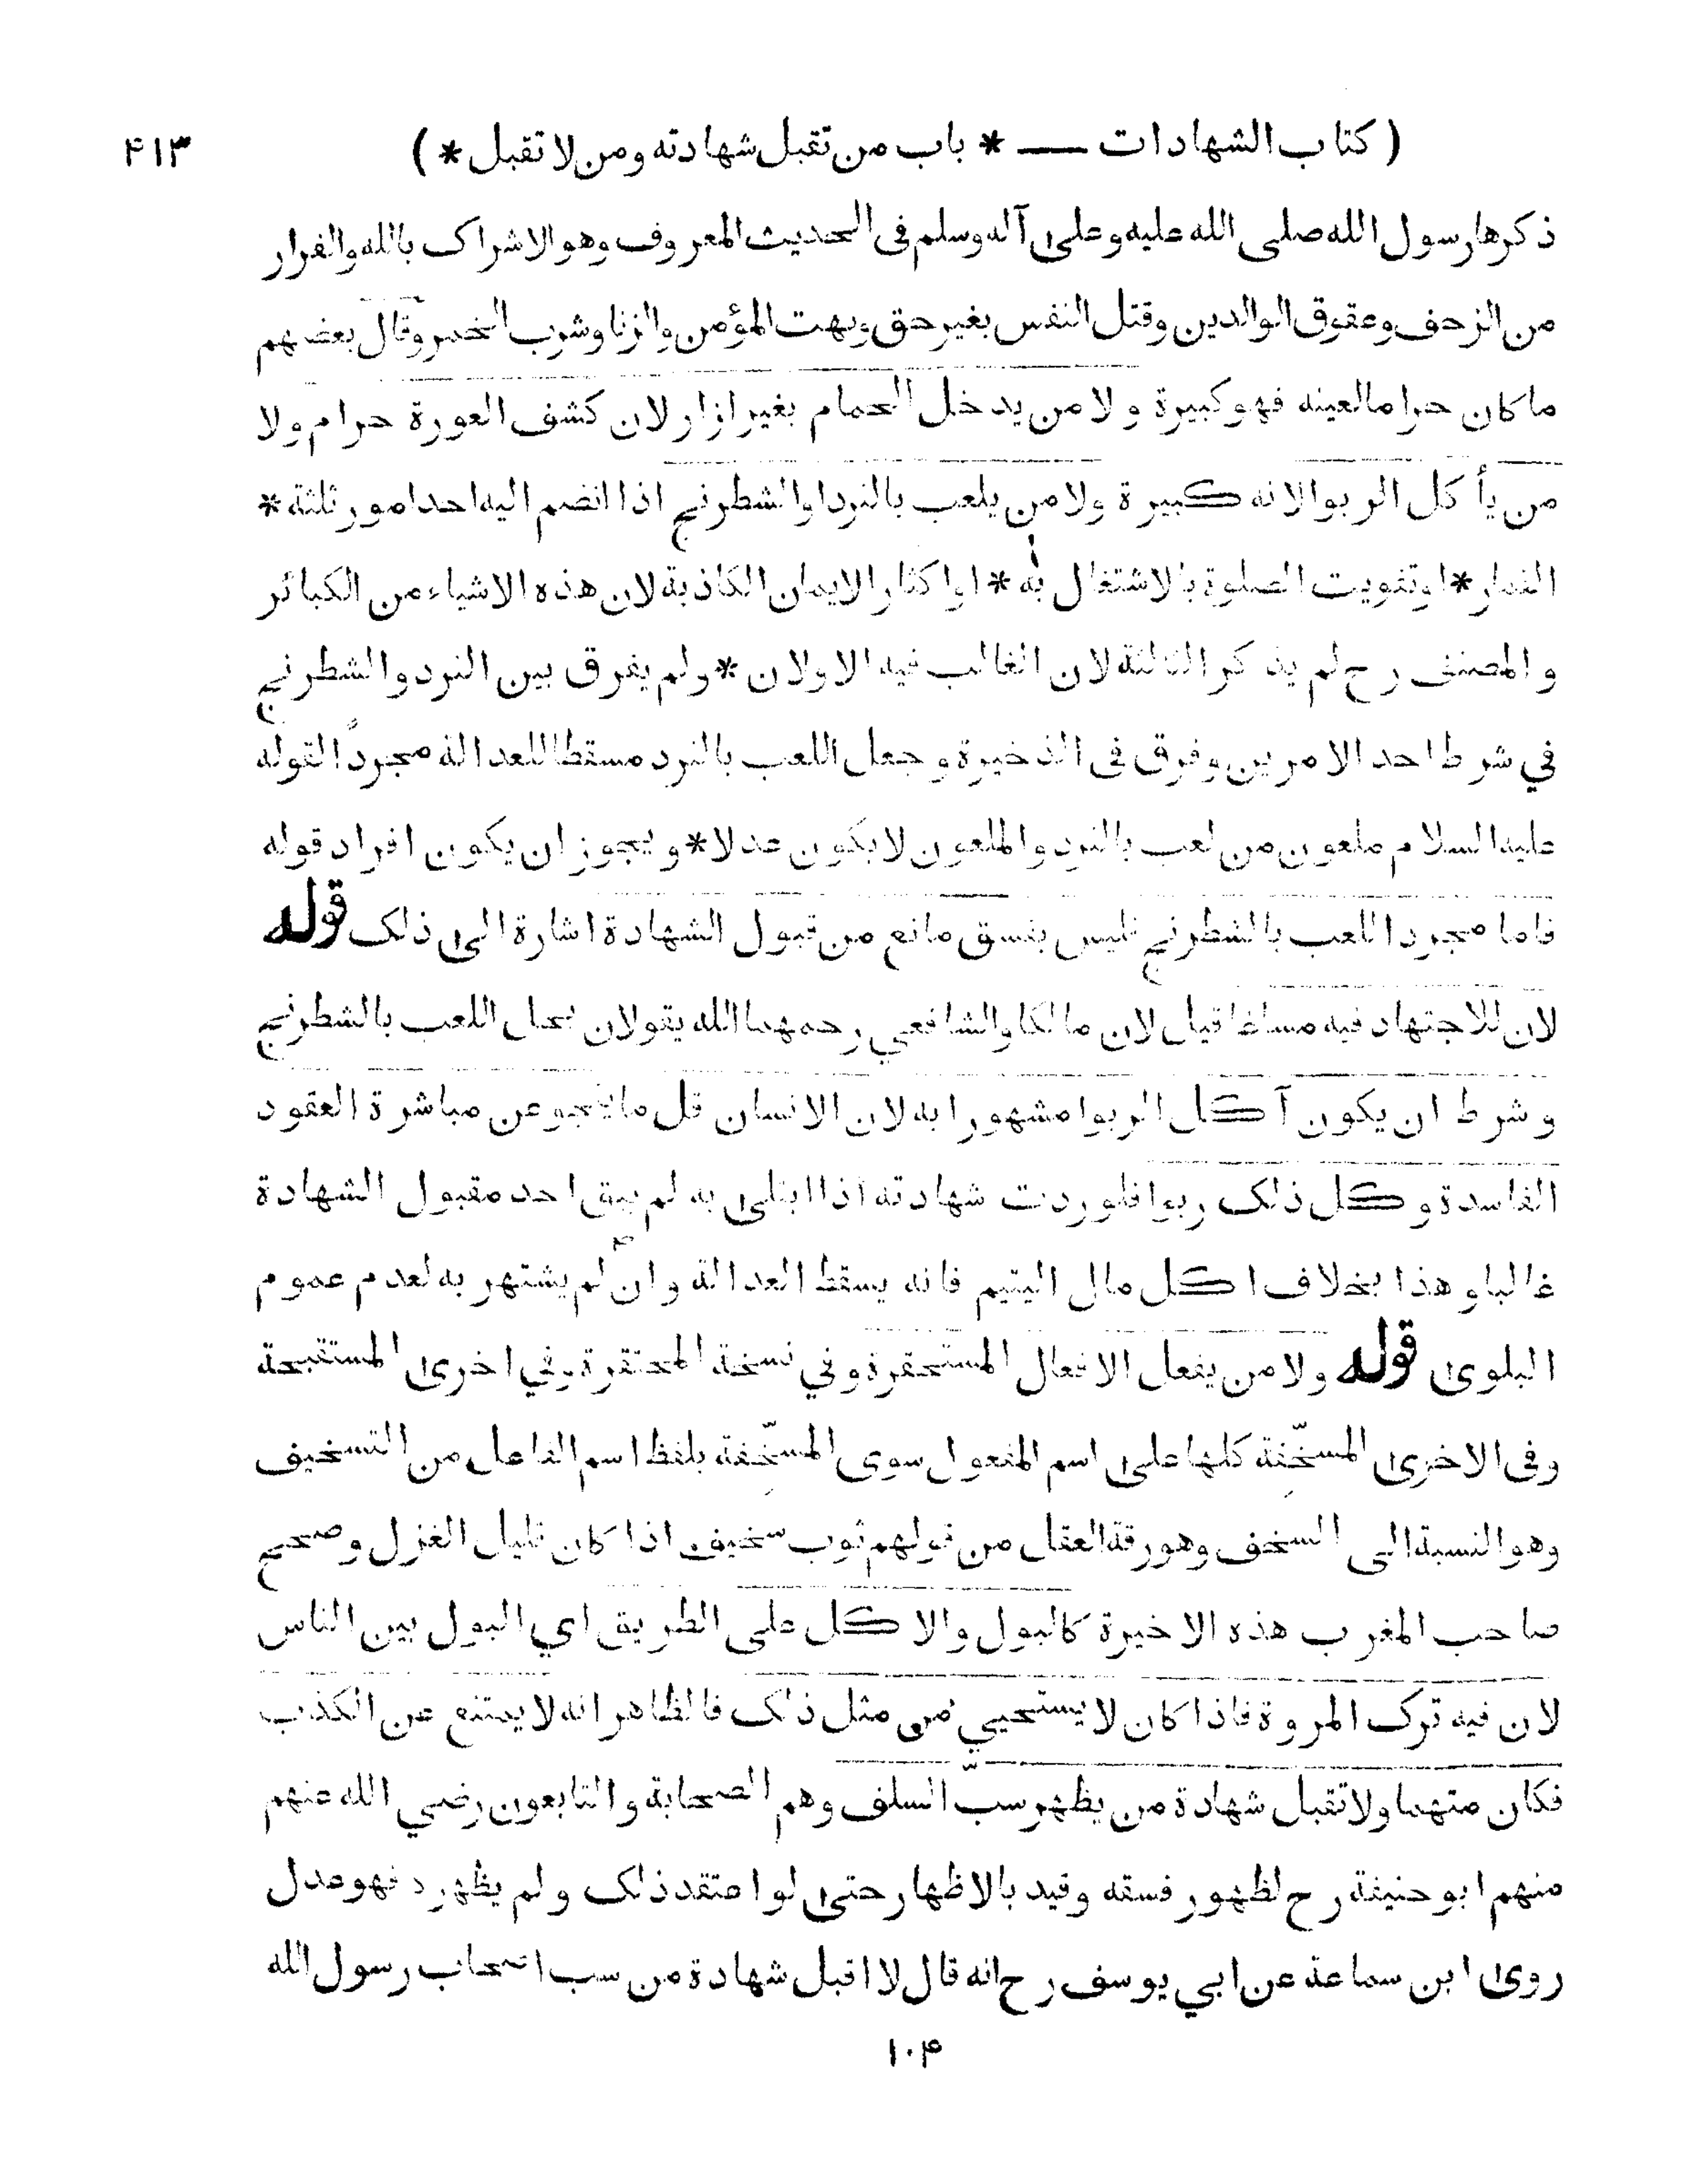 ( كتاب الشهادات — * باب من تقبل شهادته ومن لا تقبل * ) ۴۱۳
ذكرها رسول الله صلى الله عليه وعلى آله وسلم فى الحديث المعروف وهو الاشراك بالله والفرار
من الزحف وعقوق الوالدين وقتل النفس بغير حق وبهت المؤمن والزنا وشرب الخمر وقال بعضهم
ما كان حراما لعينه فهو كبيرة ولا من يدخل الحمام بغير ازار لان كشف العورة حرام ولا
من يأكل الربوا لانه كبيرة ولا من يلعب بالنرد او الشطرنج اذا انضم اليه احد امور ثلثة *
القمار * او تفويت الصلوة بالاشتغال به * او اكثار الايمان الكاذبة لان هذه الاشياء من الكبائر
والمصنف رح لم يذكر الثالثة لان الغالب فيه الاولان * ولم يفرق بين النرد والشطرنج
في شرط احد الامرين وفرق فى الذخيرة وجعل اللعب بالنرد مسقطا للعدالة مجردًا لقوله
عليه السلام ملعون من لعب بالنرد والملعون لا يكون عدلا * ويجوز ان يكون افراد قوله
فاما مجرد اللعب بالشطرنج فليس بفسق مانع من قبول الشهادة اشارة الى ذلك قوله
لان للاجتهاد فيه مساغا قيل لان مالكا والشافعي رحمهما الله يقولان بحل اللعب بالشطرنج
وشرط ان يكون آكل الربوا مشهورا به لان الانسان قل ما ينجو عن مباشرة العقود
الفاسدة وكل ذلك ربوا فلو ردت شهادته اذا ابتلى به لم يبق احد مقبول الشهادة
غالبا وهذا بخلاف اكل مال اليتيم فانه يسقط العدالة وان لم يشتهر به لعدم عموم
البلوى قوله ولا من يفعل الافعال المستحقرة وفي نسخة المحتقرة وفي اخرى المستقبحة
وفى الاخرى المسخّفة كلها على اسم المفعول سوى المسخّفة بلفظ اسم الفاعل من التسخيف
وهو النسبة الى السخف وهو رقة العقل من قولهم ثوب سخيف اذا كان قليل الغزل وصحح
صاحب المغرب هذه الاخيرة كالبول والاكل على الطريق اي البول بين الناس
لان فيه ترك المروة فاذا كان لا يستحيي من مثل ذلك فالظاهر انه لا يمتنع عن الكذب
فكان متهما ولا تقبل شهادة من يظهر سبّ السلف وهم الصحابة والتابعون رضي الله عنهم
منهم ابو حنيفة رح لظهور فسقه وقيد بالاظهار حتى لو اعتقد ذلك ولم يظهره فهو عدل
روى ابن سماعة عن ابي يوسف رح انه قال لا اقبل شهادة من سب اصحاب رسول الله
۱۰۴